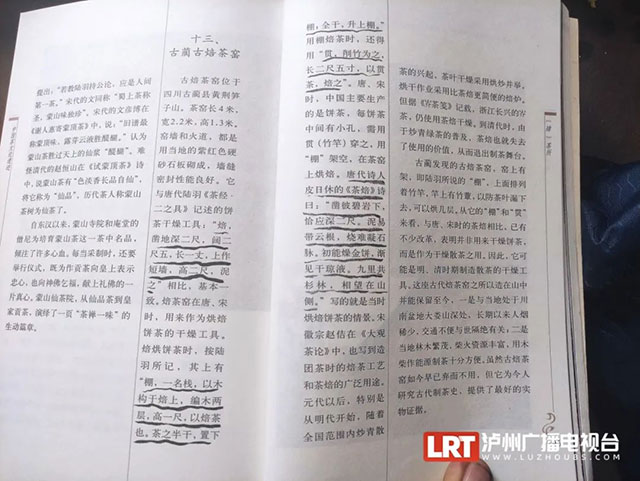 提出：“若教陆羽持公论，应是人间
第一茶。”宋代的文同称“蜀土茶称
圣，蒙山味独珍”。宋代的文彦博在
《谢人惠寄蒙顶茶》中，说：“旧谱最
称蒙顶味，露芽云液胜醍醐。”认为
蒙山茶胜过天上的仙浆“醍醐”。难
怪清代的赵恒山在《试蒙顶茶》诗
中，说蒙山茶有“色淡香长品自仙”，
将它称为“仙品”。历代茶人称蒙山
茶树为仙茶了。
自东汉以来，蒙山寺院和庵堂的
僧尼为培育蒙山茶这一茶中名品，
倾注了许多心血。每当采制时，还要
举行仪式，既为作贡茶向皇上表示
忠心，也向神佛乞福，献上礼佛的一
片真心。蒙山仙茶院，从仙品茶到皇
家贡茶，演绎了一页“茶禅一味”的
生动篇章。
十三、
古蔺古焙茶窑
古焙茶窑位于
四川古蔺县黄荆笋
子山。茶窑长4米，
宽2.2米，高1.3米，
窑墙和火道，都是
用当地的紫红色硬
砂石板砌成，墙缝
密封性能良好。它
与唐代陆羽《茶经·
二之具》记述的饼
茶干燥工具：“焙，
凿地深二尺，阔二
尺五，长一丈，上作
短墙，高二尺，泥
之”相比，基本一
致。焙茶窑在唐、宋
时，用来作为烘焙
饼茶的干燥工具。
焙烘饼茶时，按陆
羽所记，其上有
“棚，一名栈，以木
构于焙上，编木两
层，高一尺，以焙茶
也。茶之半干，置下
棚；全干，升上棚。”
用棚焙茶时，还得
用“贯，削竹为之，
长二尺五寸，以贯
茶，焙之”。唐、宋
时，中国主要生产
的是饼茶，每饼茶
中间有小孔，需用
贯（竹竿）穿之，用
“棚”架空，在茶窑
上烘焙。唐代诗人
皮日休的《茶焙》诗
曰：“凿彼碧岩下，
恰应深二尺，泥易
带云根，烧难凝石
脉。初能燥金饼，渐
见干琼液。九里共
杉林，相望在山
侧。”写的就是当时
烘焙饼茶的情景。宋
徽宗赵佶在《大观
茶论》中，也写到造
团茶时的焙茶工艺
和茶焙的广泛用途。
元代以后，特别是
从明代开始，随着
全国范围内炒青散
茶的兴起，茶叶干燥采用烘炒并举。
烘干作业采用比茶焙更简便的焙炉。
但据《岕茶笺》记载，浙江长兴的岕
茶，仍使用茶焙干燥。到清代时，由
于炒青绿茶的普及、茶焙也就失去
了使用的价值，从而退出制茶舞台。
古蔺发现的古焙茶窑，窑上有
架，即陆羽所说的“棚”，上面排列
着竹竿，竿上有竹簟，以防茶叶漏下
去，可以烘几层。从它的“棚”和“贯”
来看，与唐、宋时的茶焙相比，已有
不少改革，表明并非用来干燥饼茶，
而是作为干燥散茶之用。因此，它可
能是明、清时期制造散茶的干燥工
具。这座古代焙茶窑之所以造在山中
并能保留至今，一是与当地处于川
南盆地大娄山深处，长期以来人烟
稀少，交通不便与世隔绝有关；二是
当地林木繁茂，柴火资源丰富，用木
柴作能源制茶十分方便。虽然古焙茶
窑如今早已弃而不用，但它为今人
研究古代制茶史，提供了最好的实
物证据。
LRT 泸州广播电视台
WWW.LUZHOUBS.COM